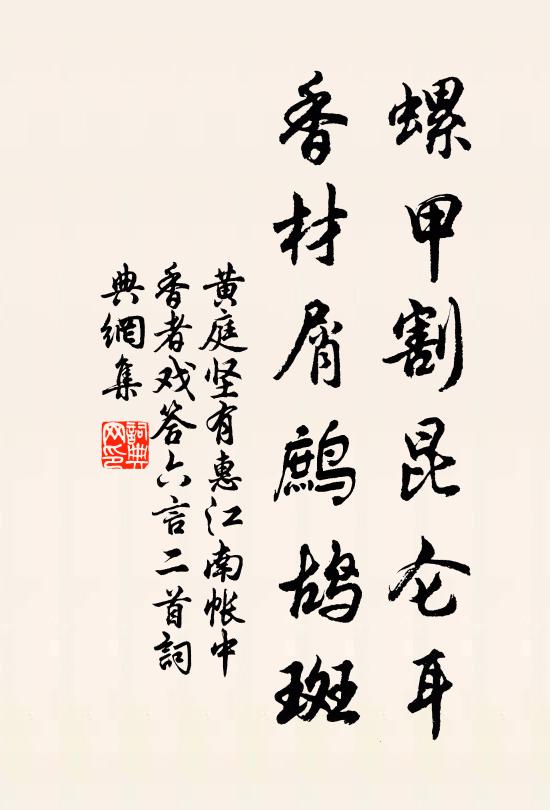 螺甲割昆仑耳
香材屑鹧鸪斑
黄庭坚有惠江南帐中
香者戏答六言二首詞
典網集
詞典
网印